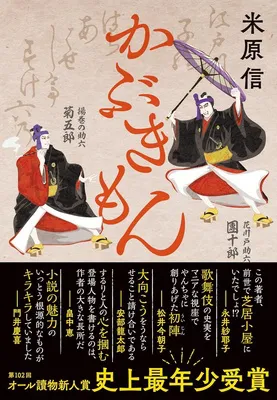 米原信
かぶきもん
花川戸助六
團十郎
揚巻の助六
菊五郎
この著者、
前世で芝居小屋に
いたでしょ!?
——永井紗耶子
歌舞伎の史実を
マニアな視座で
やんちゃに
創りあげた初陣
——松井今朝子
大向こうをうなら
せること請け合いである
——安部龍太郎
するりと人の心を掴む
登場人物を書けるのは、
作者の大きな長所だ
——畠中恵
小説の魅力の
いっとう根源的なものが
キラキラしていました
——門井慶喜
第102回
オール讀物新人賞
史上最年少受賞